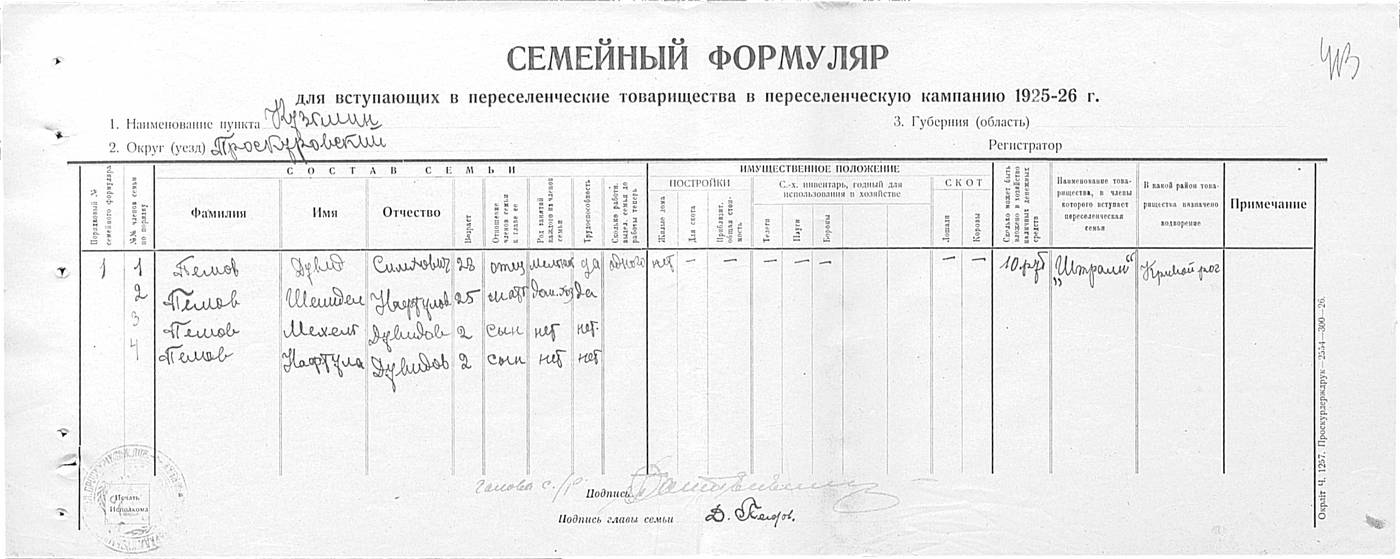 СЕМЕЙНЫЙ ФОРМУЛЯР
для вступающих в переселенческие товарищества в переселенческую кампанию 1925-26 г.
1. Наименование пункта Кузьмин
3. Губерния (область)
2. Округ (уезд) Проскуровский
Регистратор
СОСТАВ СЕМЬИ
ИМУЩЕСТВЕННОЕ ПОЛОЖЕНИЕ
Порядковый № семейного формуляра
№№ членов семьи по порядку
Фамилия
Имя
Отчество
Возраст
Отношение членов семьи к главе ее
Род занятий каждого из членов семьи
Трудоспособность
Сколько работн. выдел. семья до работы теперь
ПОСТРОЙКИ
Жилые дома
Для скота
Приблизит. общая стоимость
С.-х. инвентарь, годный для использования в хозяйстве
Телеги
Плуги
Бороны
СКОТ
Лошади
Коровы
Сколько может быть вложено в хозяйство наличных денежных средств
Наименование товарищества, в члены которого вступает переселенческая семья
В какой район товарищества назначено водворение
Примечание
1 1 Пемов Дувид 28 отец да одного нет — — — — — — — 10 руб Кривой рог
2 Пемов 25 дом. хоз да
3 Пемов Дувидов 2 сын нет нет
4 Пемов Нафтула Дувидов 2 сын нет нет
Печать Исполкома
Голова с/р
Подпись
Подпись главы семьи Д. Пемов.
Окрліт Ч. 1257. Проскурдерждрук—2554—300—26.